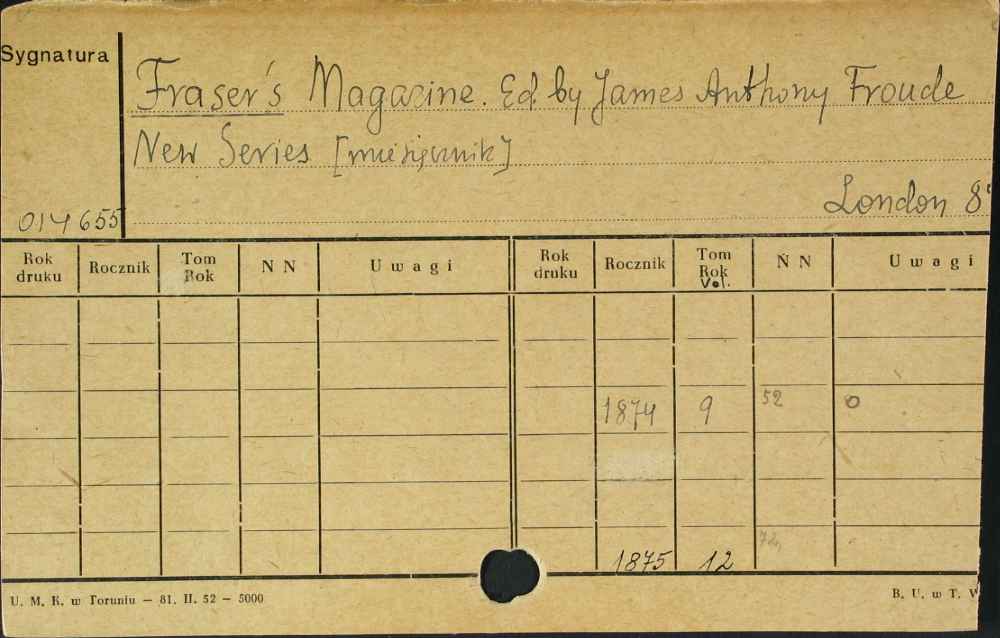 Sygnatura
Fraser's Magazine. Ed. by James Anthony Froude
New Series [miesięcznik]
London 8°
014655
Rok druku Rocznik Tom Rok N N Uwagi Rok druku Rocznik Tom Rok Vol. N N Uwagi
1874 9 52 o
72,
1875 12
U. M. K. w Toruniu — 81. II. 52 — 5000
B. U. w T. W